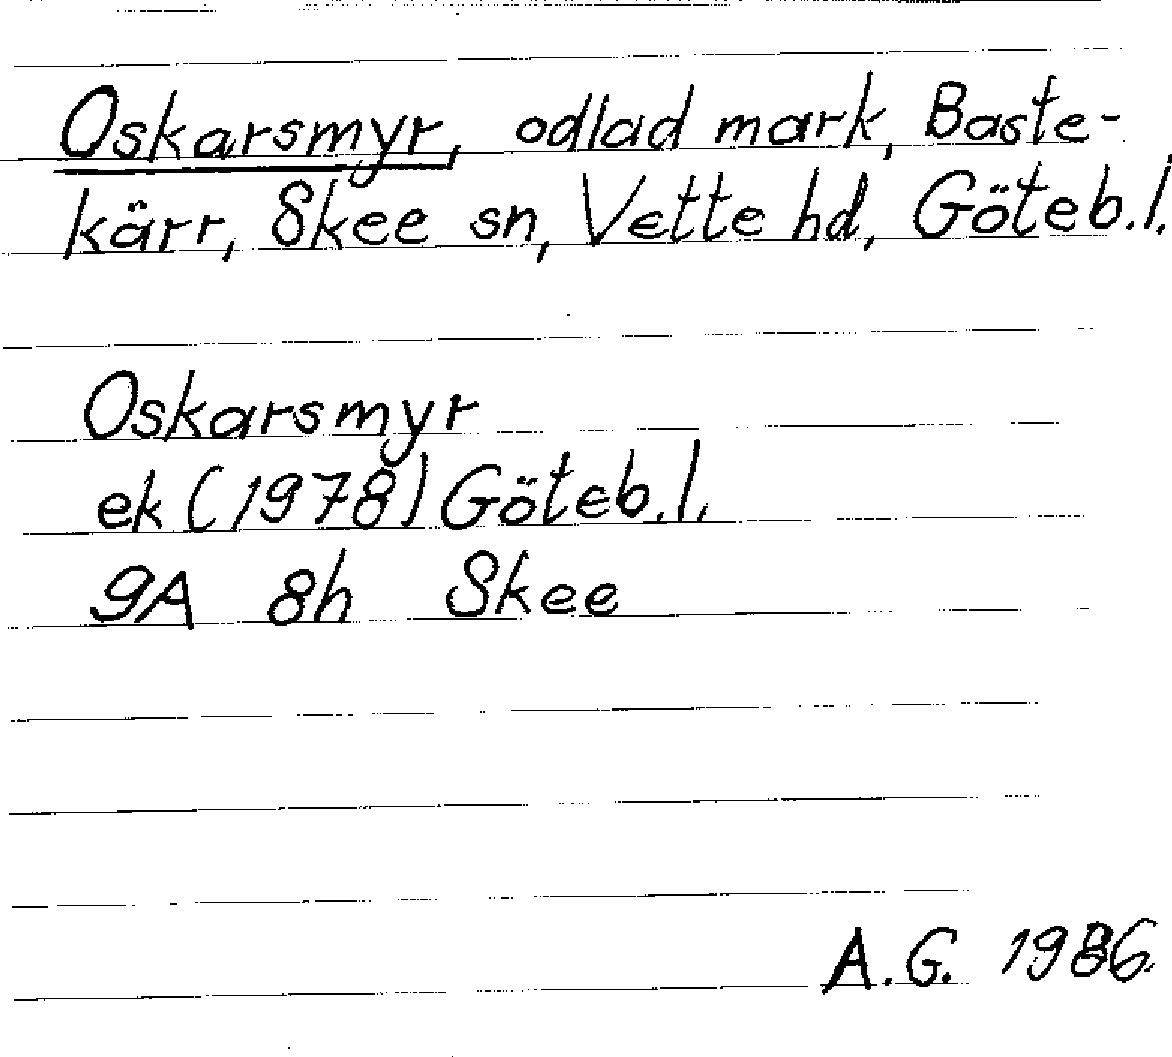 Oskarsmyr, odlad mark, Baste-
kärr, Skee sn, Vette hd, Göteb.l.
Oskarsmyr
ek (1978) Göteb.l.
9A 8h Skee
A.G. 1986